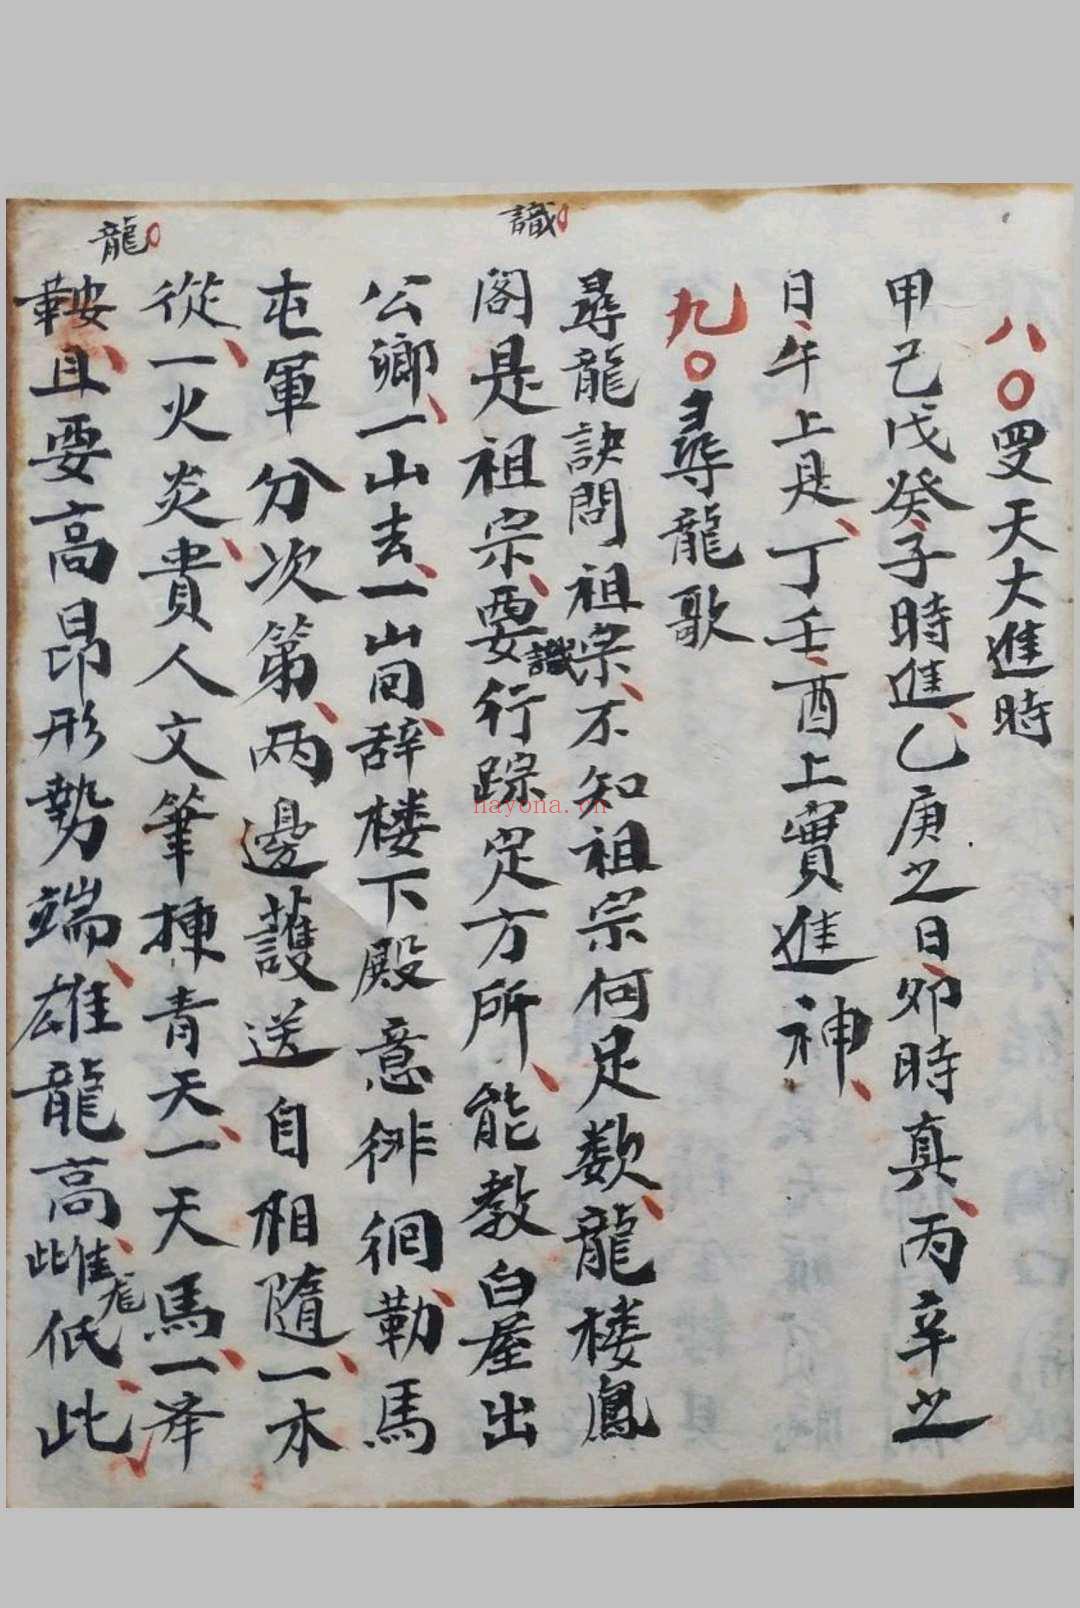 八〇罡天大進時
甲己戊癸子時進、乙庚之日卯時真、丙辛之
日午上是、丁壬酉上實進神、
九〇尋龍歌
尋龍訣問祖宗、不知祖宗何足数、龍楼鳳
識
閣是祖宗、要識行踪定方所、能教白屋出
公卿、一山去、一山回、辞楼下殿意徘徊、勒馬
屯軍分次第、两邊護送自相隨、一木
從、一火炎、貴人文筆揷青天、一天馬、一
龍
鞍、且要高昂形勢端、雄龍高、雌龍低、此
nayona.cn